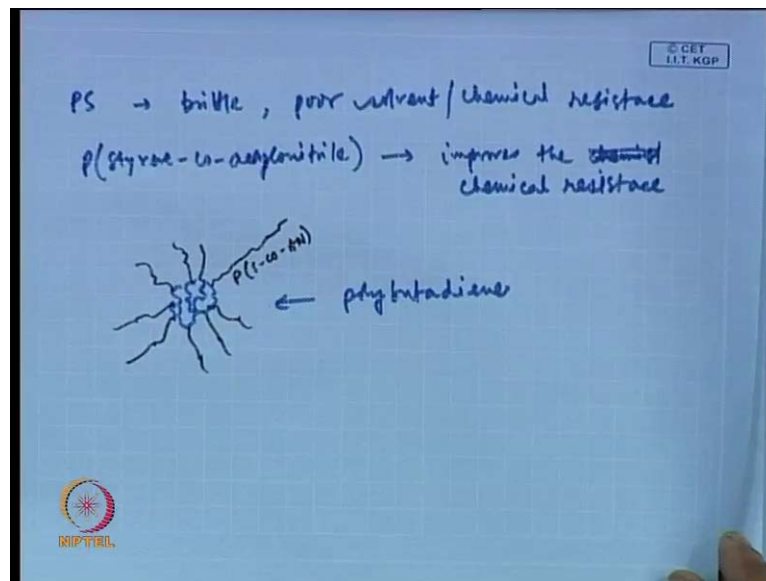 © CET
I.I.T. KGP
PS → brittle, poor solvent/chemical resistace
P(styrene-co-acrylonitrile) → improves the
chemical resistace
P(S-co-AN)
← polybutadiene
NPTEL